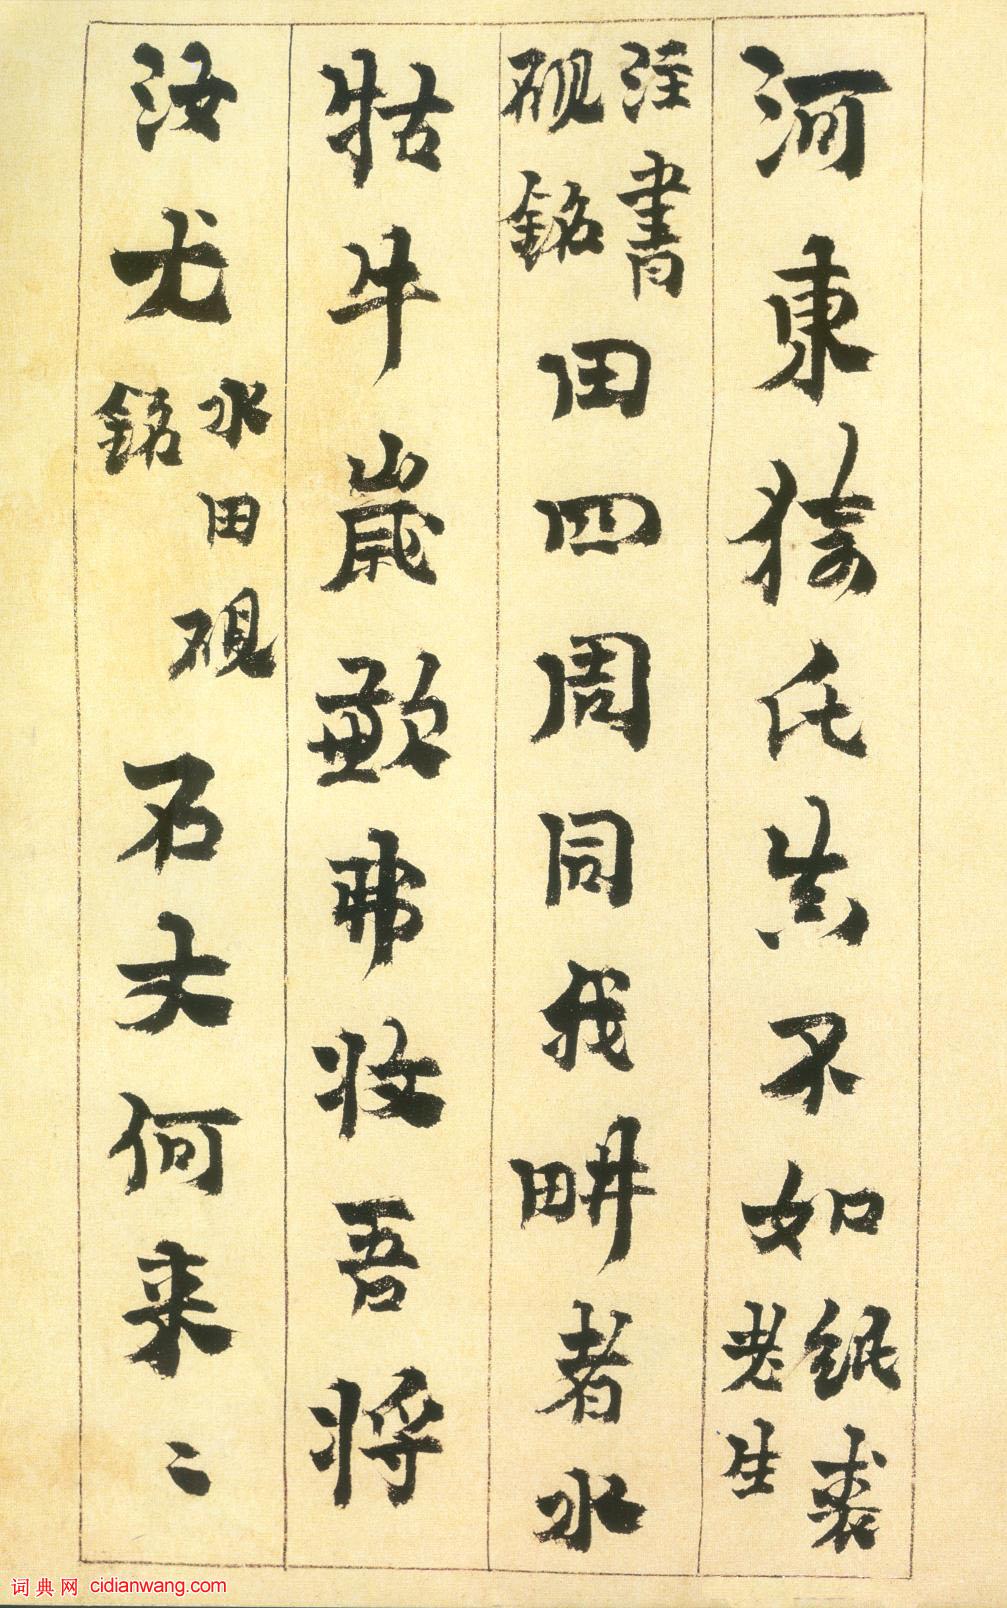 河東猗氏其不如纸裘老生
注書硯銘田四周同我畊者水
牯牛歲歉弗收吾將
汝尤水田硯銘石丈何来二
词典网 cidianwang.com